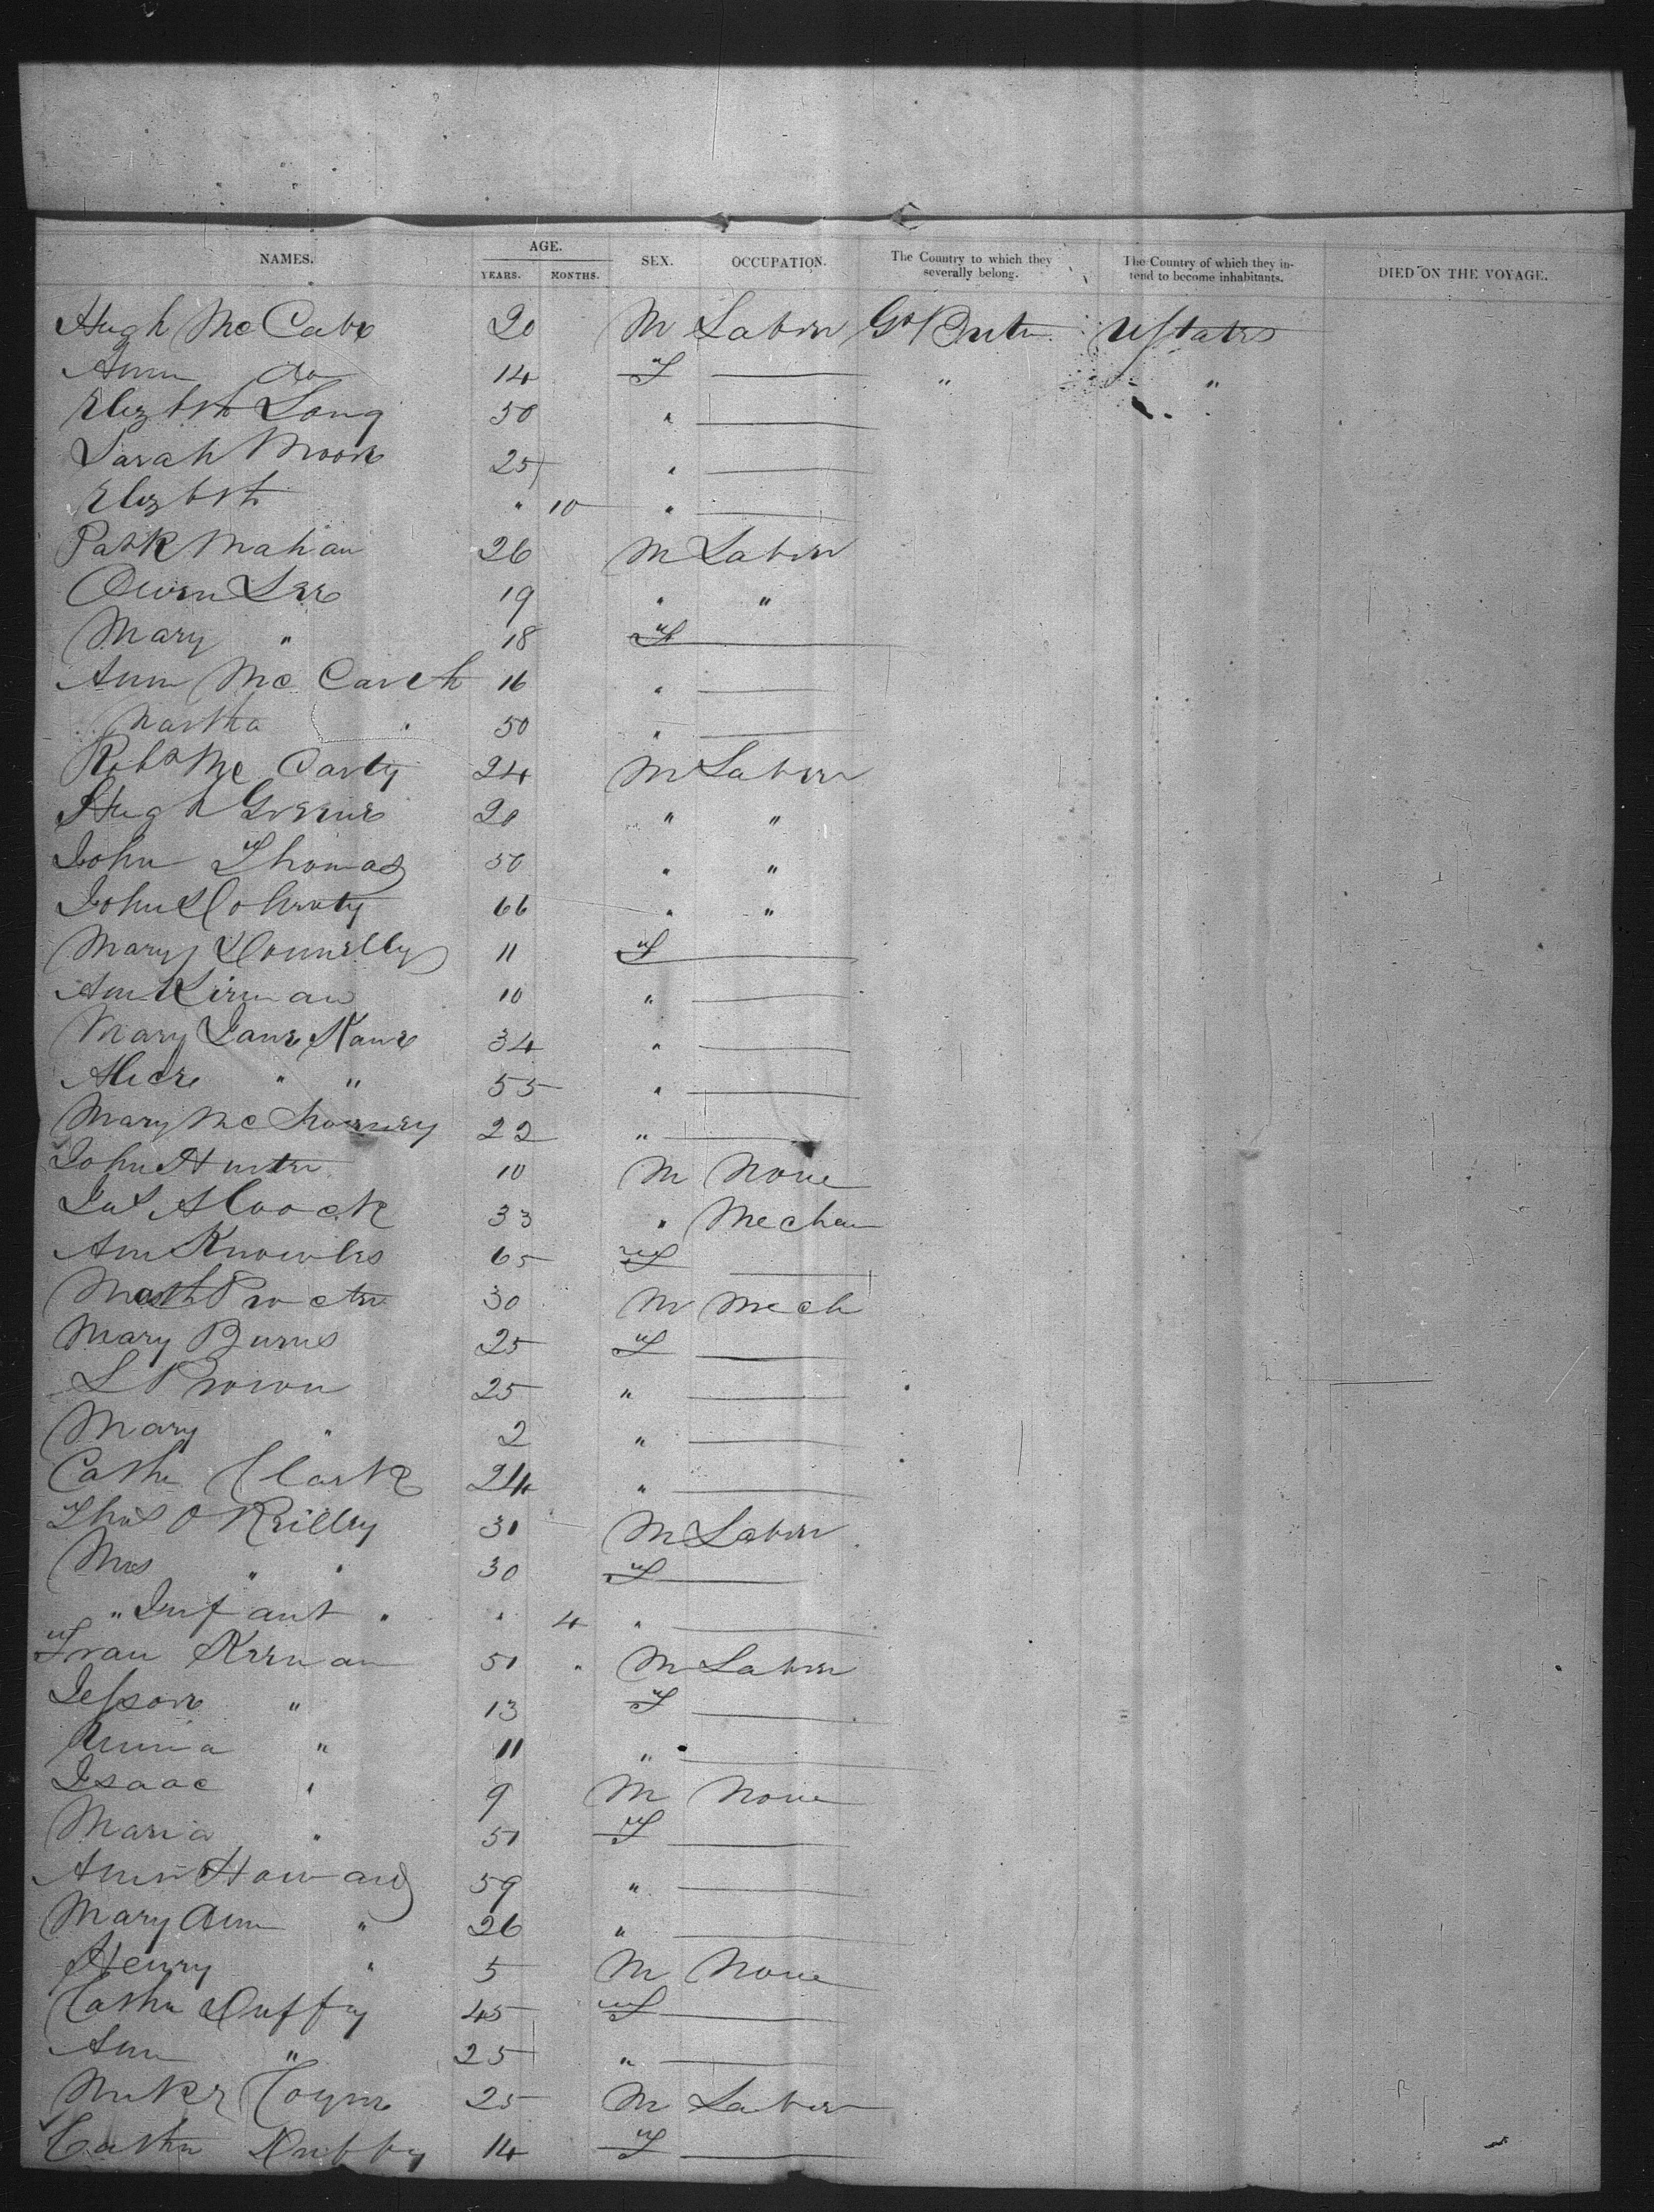 NAMES. AGE. YEARS. MONTHS. SEX. OCCUPATION. The Country to which they severally belong. The Country of which they intend to become inhabitants. DIED ON THE VOYAGE.
Hugh McCabe 20 M Labor Gt Britn UStates
Ann do 14 F — " "
Elizbth Long 50 " —
Sarah Moore 25 " —
Elizbth " 10 " —
Patk Mahan 26 M Labor
Owen Lee 19 " "
Mary " 18 F —
Ann Mc 16 " —
Martha " 50 " —
Robt McCarty 24 M Labor
Hugh Greene 20 " "
John Thomas 50 " "
John Doherty 66 " "
Mary Donnelly 11 F —
Ann Kirnan 10 " —
Mary Jane Kane 34 " —
Alice " " 55 " —
Mary Mc 22 " —
John Hunter 10 M None
Jas 33 " Mechan
Ann Knowles 65 F —
Proctor 30 M Mech
Mary Burns 25 F —
L Brown 25 " —
Mary " 2 " —
Cathe Clark 24 " —
Thos O Reilly 30 M Labor
Mrs " " 30 F —
" Infant " " 4 " —
Fran Kernan 50 " M Labor
" 13 F —
" 11 " —
Isaac " 9 M None
Maria " 50 F —
Ann Howard 59 " —
Mary Ann " 26 " —
Henry " 5 M None
Cathe Duffy 45 F —
Ann " 25 " —
Coyne 25 M Labor
Cathe Duffy 14 F —